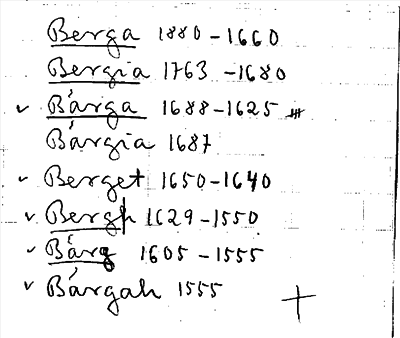 Berga 1880-1660
Bergia 1763-1680
Bårga 1688-1625
Bårgia 1687
Berget 1650-1640
Bergh 1629-1550
Bårg 1605-1555
Bårgah 1555